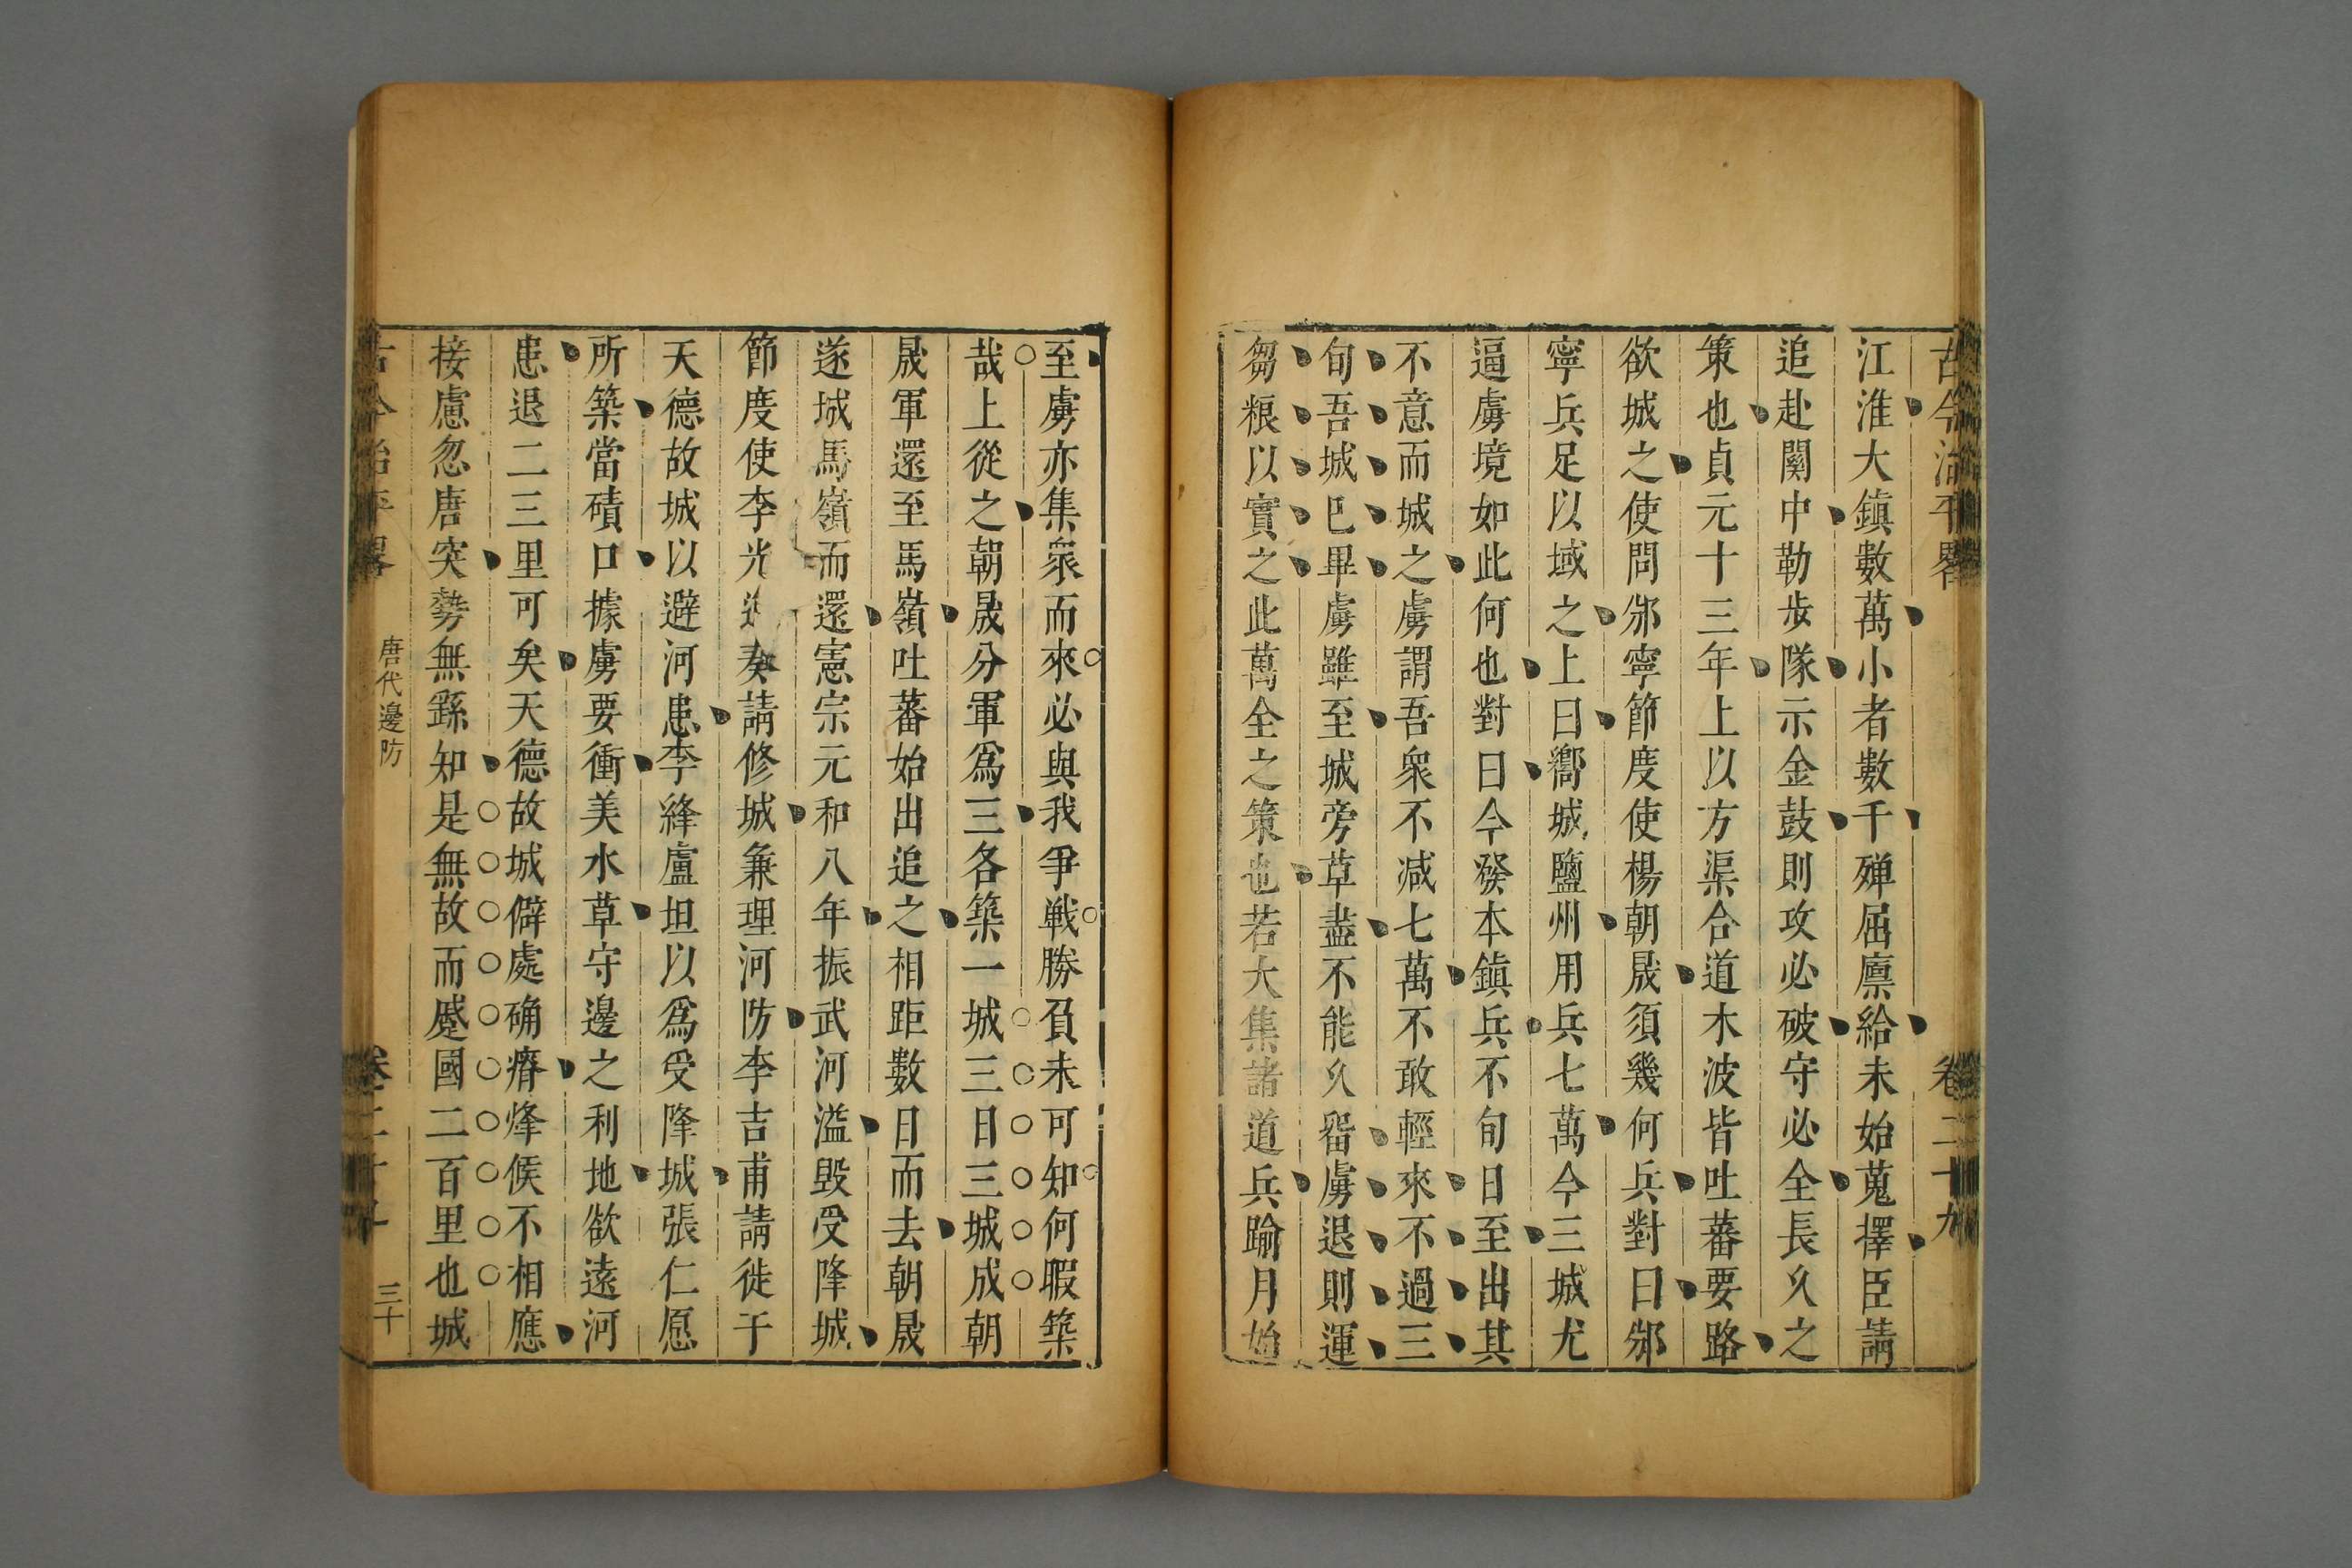 古今治平畧 卷二十九
江淮大鎮數萬小者數千殫屈廪給未始蒐擇臣請
追赴關中勒步隊示金鼓則攻必破守必全長久之
策也貞元十三年上以方渠合道木波皆吐蕃要路
欲城之使問邠寧節度使楊朝晟須幾何兵對曰邠
寧兵足以城之上曰嚮城鹽州用兵七萬今三城尤
逼虜境如此何也對曰今發本鎮兵不旬日至出其
不意而城之虜謂吾衆不减七萬不敢輕來不過三
旬吾城巳畢虜雖至城旁草盡不能久畱虜退則運
芻粮以實之此萬全之策也若大集諸道兵踰月始
至虜亦集衆而來必與我爭戰勝負未可知何暇築
哉上從之朝晟分軍爲三各築一城三日三城成朝
晟軍還至馬嶺吐蕃始出追之相距數日而去朝晟
遂城馬嶺而還憲宗元和八年振武河溢毁受降城
節度使李光進奏請修城兼理河防李吉甫請徙于
天德故城以避河患李絳盧坦以爲受降城張仁愿
所築當磧口據虜要衝美水草守邊之利地欲遠河
患退二三里可矣天德故城僻處确瘠烽候不相應
接慮忽唐突勢無繇知是無故而蹙國二百里也城
古今治平畧 唐代邊防 卷二十九 三十